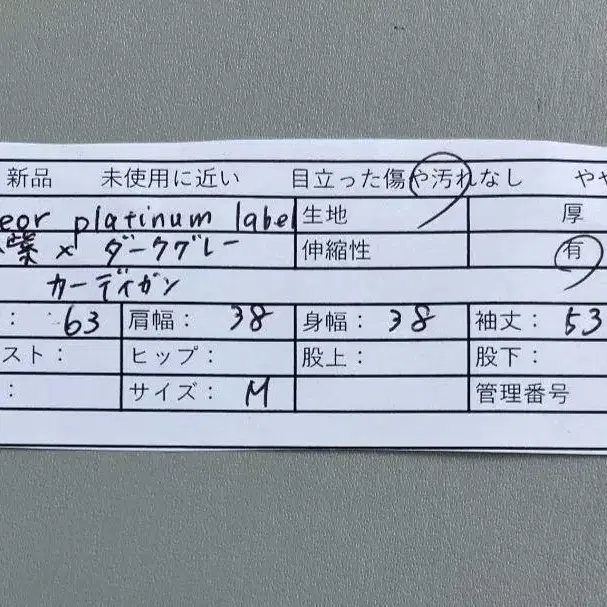 新品 未使用に近い 目立った傷や汚れなし やや
eor platinum label 生地 厚
× ダークグレー 伸縮性 有
カーディガン
: 63 肩幅: 38 身幅: 38 袖丈: 53
スト: ヒップ: 股上: 股下:
: サイズ: M 管理番号